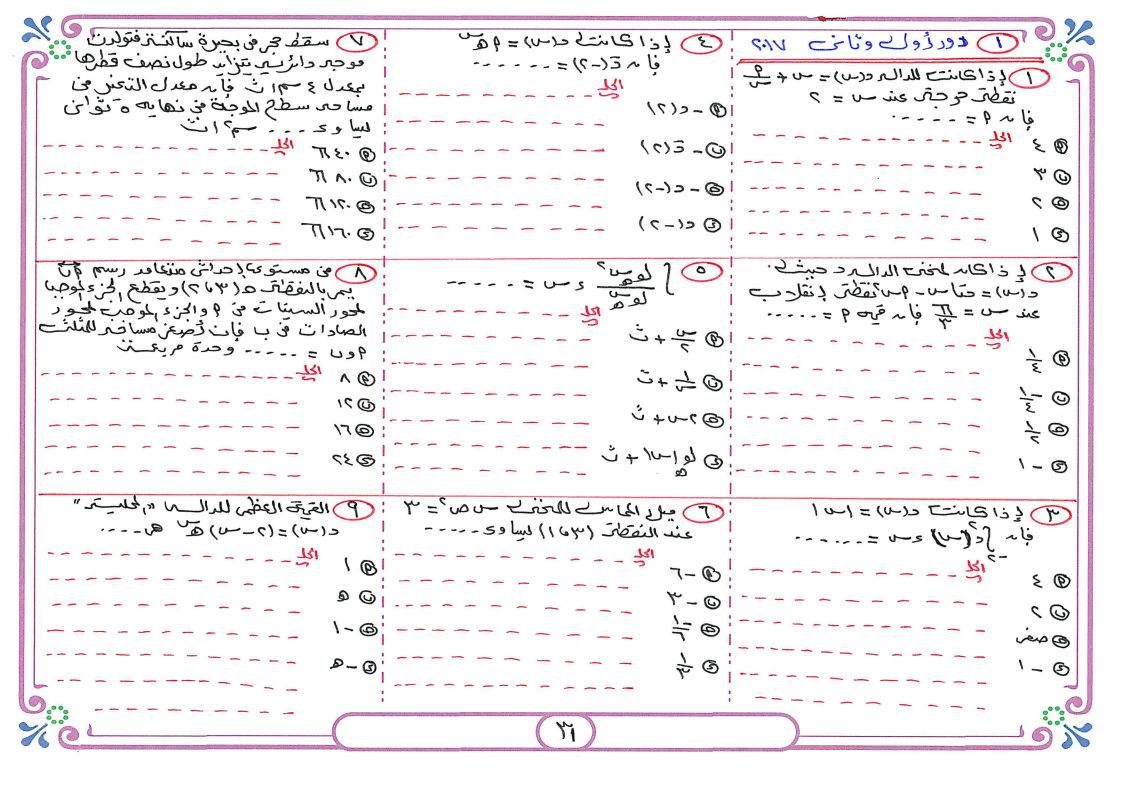 ١ دور أول وثانى ٢٠١٧
١ إذا كانت للدالة د(س) = س + م/س
نقطة حرجة عند س = ٢
فإن م = .....
الحل
أ ٤
ب ٣
ج ٢
د ١
٢ إذا كان لمنحنى الدالة د حيث
د(س) = حتاس - م س² نقطة إنقلاب
عند س = π/٣ فإن قيمة م = .....
الحل
أ ١/٤
ب -١/٤
ج ١/٢
د -١
٣ إذا كانت د(س) = |س|
فإن ∫ ٢ -٢ د(س) ءس = ......
الحل
أ ٤
ب ٢
ج صفر
د -١
٤ إذا كانت د(س) = م هـ^س
فإن د َ(-٢) = ......
الحل
أ -د(٢)
ب -د َ(٢)
ج -د(-٢)
د د(-٢)
٥ ∫ لو س² / لو س ءس = .....
الحل
أ س/٢ + ث
ب ١/س + ث
ج ٢س + ث
د لو هـ |س| + ث
٦ ميل المماس للمنحنى س ص² = ٣
عند النقطة (٣، ١) يساوى .....
الحل
أ -٦
ب -٣
ج -١/٦
د ١/٣
٧ سقط حجر فى بحيرة ساكنة فتولدت
موجة دائرية يتزايد طول نصف قطرها
بمعدل ٤ سم/ث فإن معدل التغير فى
مساحة سطح الموجة فى نهاية ٥ ثوانى
يساوى .... سم²/ث
الحل
أ ٤٠π
ب ٨٠π
ج ١٢٠π
د ١٦٠π
٨ فى مستوى إحداثى متعامد رسم م ب
يمر بالنقطة هـ (٣، ٢) ويقطع الجزء الموجب
لمحور السينات فى م والجزء الموجب لمحور
الصادات فى ب فإن أصغر مساحة للمثلث
م و ب = ..... وحدة مربعة
الحل
أ ٨
ب ١٢
ج ١٦
د ٢٤
٩ القيمة العظمى للدالة "المحلية"
د(س) = (٢ - س) هـ^س هى ....
الحل
أ ١
ب هـ
ج -١
د -هـ
٣١